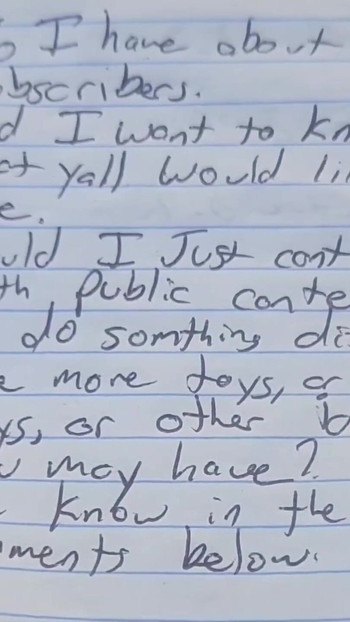 I have about
bscribers.
d I want to kn
at yall would li
e.
uld I Just cont
th public conte
do somthing di
e more toys, or
ys, or other b
u may have?
know in the
ments below.